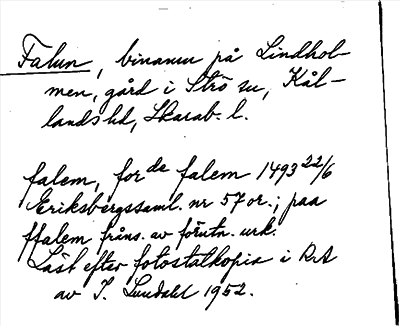 Falun, binamn på Lindhol-
men, gård i Strö sn, Kål-
lands hd, Skarab. l.
falem, for de falem 1493 22/6
Eriksbergssaml. nr 57 or.; paa
ffalem frans. av förutn. urk.
Läst efter fotostatkopia i RA
av I. Lundahl 1952.